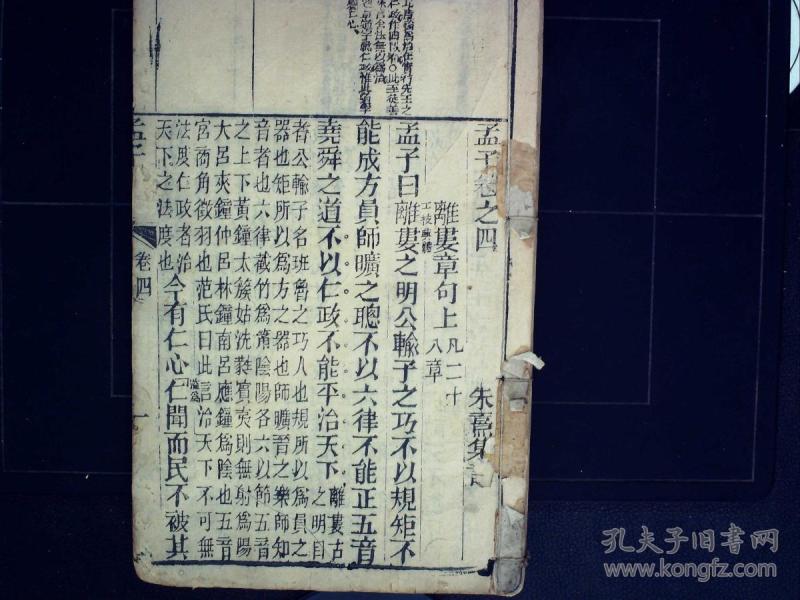 孟子卷之四
朱熹集註
離婁章句上 凡二十八章
孟子曰離婁之明公輸子之巧不以規矩不
能成方員師曠之聰不以六律不能正五音
堯舜之道不以仁政不能平治天下 離婁古之明目
者公輸子名班魯之巧人也規所以為員之
器也矩所以為方之器也師曠晉之樂師知
音者也六律截竹為筩陰陽各六以節五音
之上下黃鐘太簇姑洗蕤賓夷則無射為陽
大呂夾鐘仲呂林鐘南呂應鐘為陰也五音
宮商角徵羽也范氏曰此言治天下不可無
法度仁政者治
天下之法度也
今有仁心仁聞而民不被其
孟子
卷四
一
孔夫子旧书网
www.kongfz.com